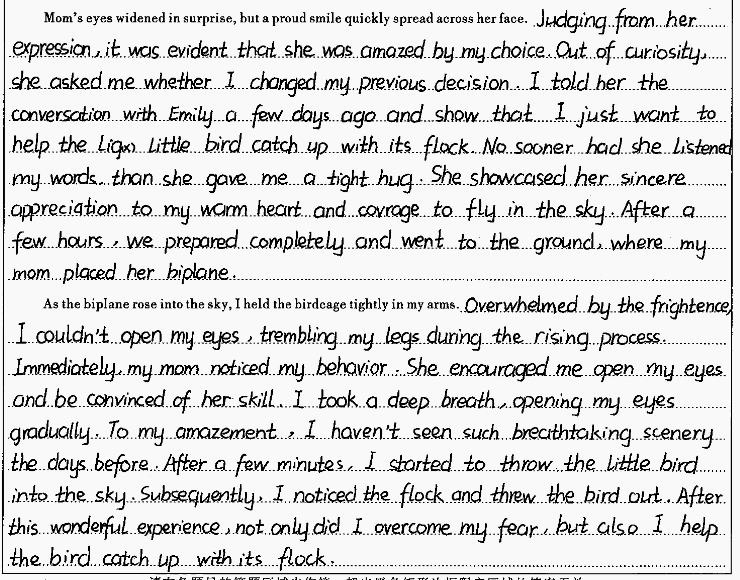 Mom's eyes widened in surprise, but a proud smile quickly spread across her face. Judging from her
expression, it was evident that she was amazed by my choice. Out of curiosity,
she asked me whether I changed my previous decision. I told her the
conversation with Emily a few days ago and show that I just want to
help the little bird catch up with its flock. No sooner had she listened
my words, than she gave me a tight hug. She showcased her sincere
appreciation to my warm heart and covrage to fly in the sky. After a
few hours, we prepared completely and went to the ground, where my
mom placed her biplane.
As the biplane rose into the sky, I held the birdcage tightly in my arms. Overwhelmed by the frightence,
I couldn't open my eyes, trembling my legs during the rising process.
Immediately, my mom noticed my behavior. She encouraged me open my eyes
and be convinced of her skill. I took a deep breath, opening my eyes
gradually. To my amazement, I haven't seen such breathtaking scenery
the days before. After a few minutes, I started to throw the little bird
into the sky. Subsequently, I noticed the flock and threw the bird out. After
this wonderful experience, not only did I overcome my fear, but also I help
the bird catch up with its flock.